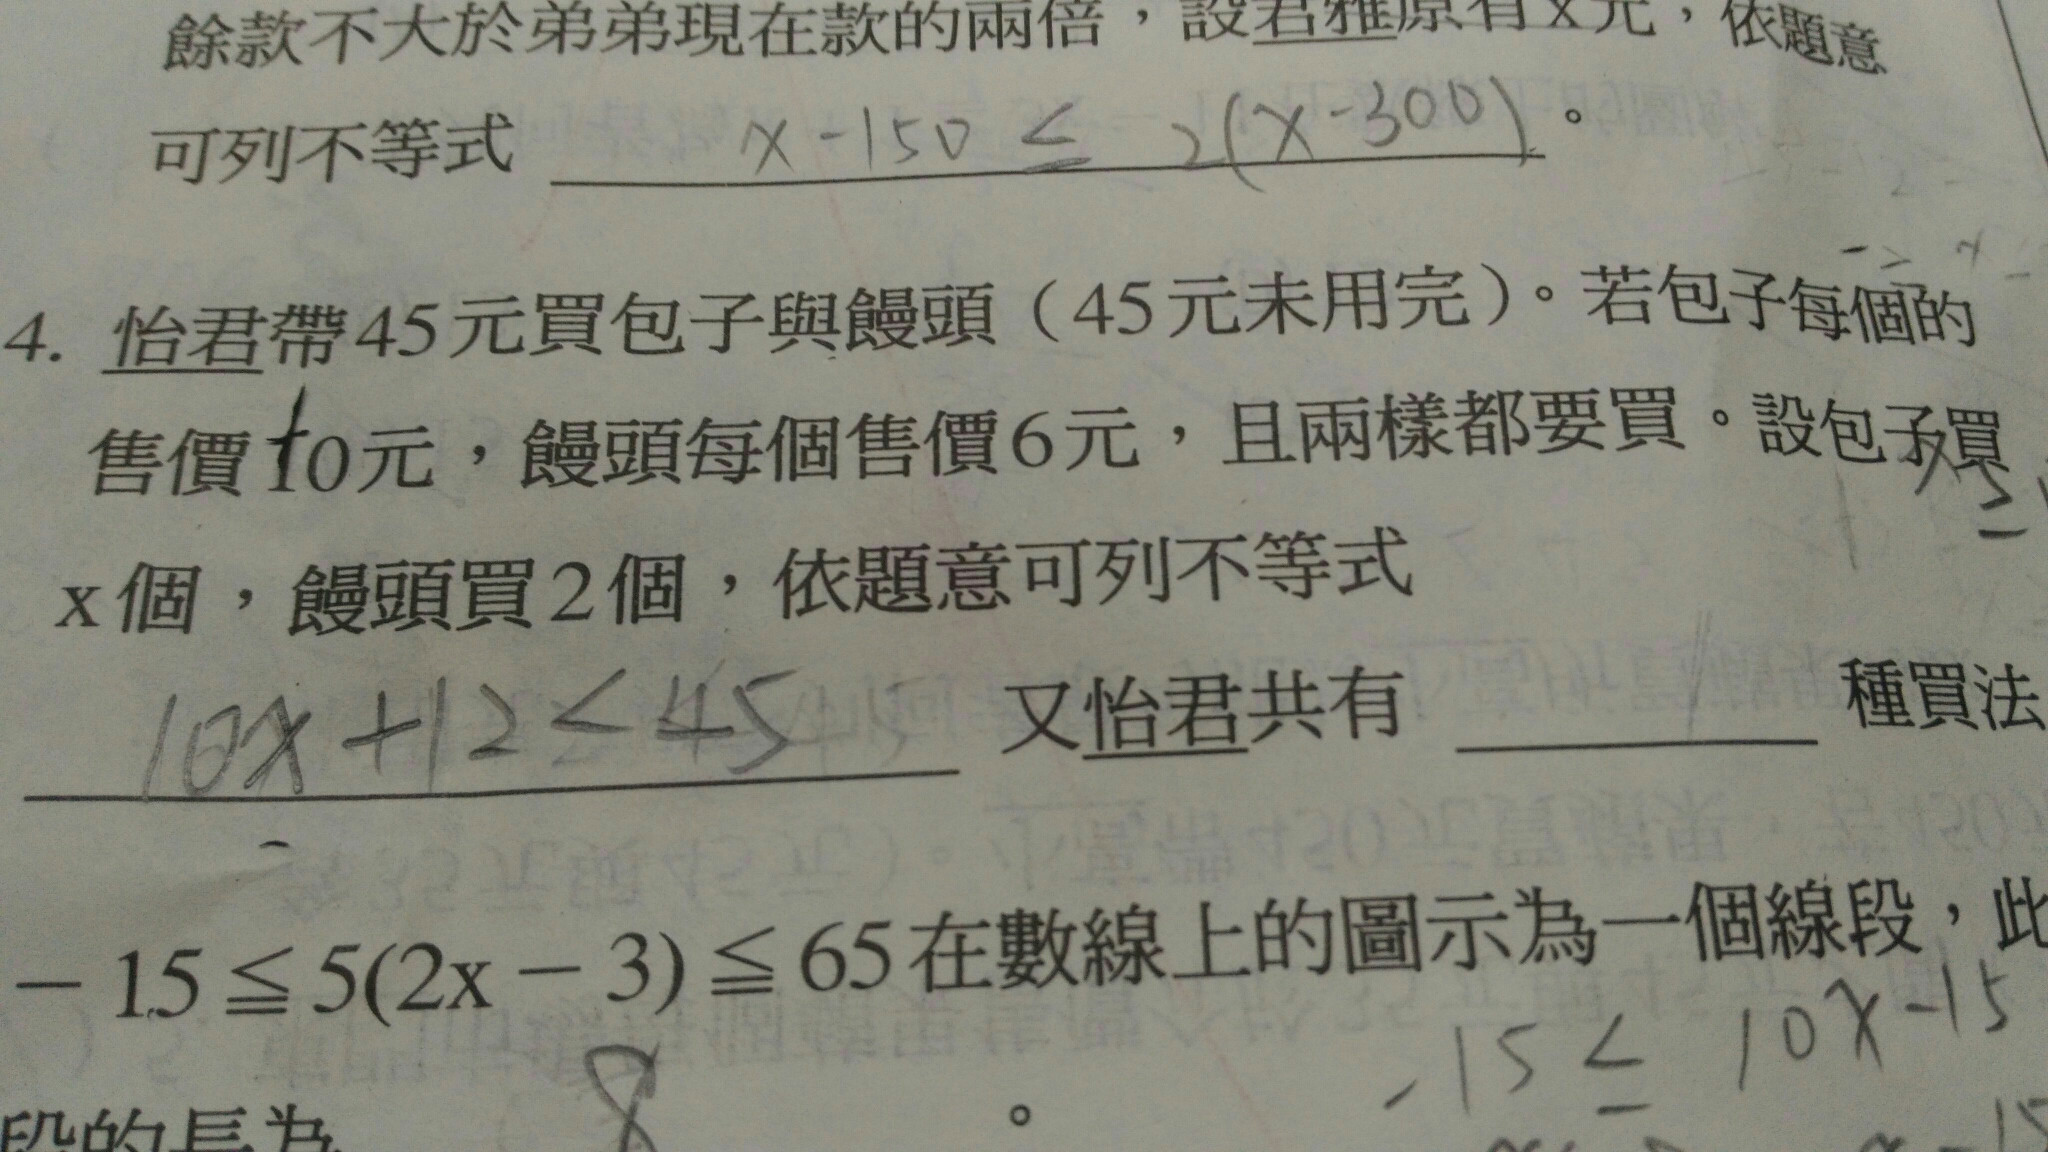 餘款不大於弟弟現在款的兩倍，設君雅原有x元，依題意
可列不等式 x-150 ≤ 2(x-300)。
4. 怡君帶45元買包子與饅頭（45元未用完）。若包子每個的
售價10元，饅頭每個售價6元，且兩樣都要買。設包子買
x個，饅頭買2個，依題意可列不等式
10x+12<45 又怡君共有 種買法
－15≦5(2x－3)≦65在數線上的圖示為一個線段，此
-15 ≤ 10x-15
段的長為 8 。